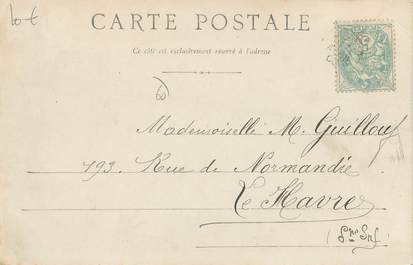 10 €
CARTE POSTALE
Ce côté est exclusivement réservé à l'adresse
60
Mademoiselle M. Guillouf
193. Rue de Normandie
Le Havre